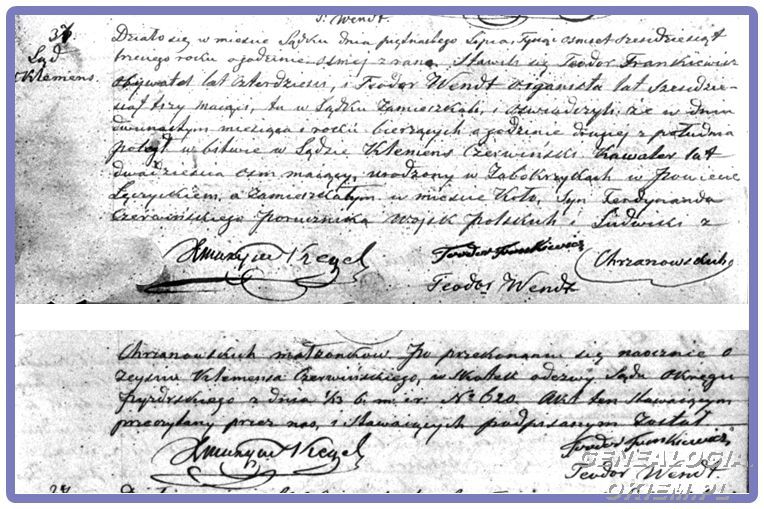 J. Wendt
37
Ląd
Klemens.
Działo się w mieście Lądku dnia piętnastego Lipca, Tysiąc ośmset sześdziesiąt
trzeciego roku o godzinie ósmej z rana, Stawili się Teodor Frankiewicz
obywatel lat czterdzieści, i Teodor Wendt organista lat sześdzie-
siąt trzy mający, tu w Lądku zamieszkali, i oświadczyli; że w dniu
dwunastym miesiąca i roku bieżących o godzinie drugiej z południa
poległ w bitwie w Lądzie Klemens Czerwiński Kawaler lat
dwadzieścia ośm mający, urodzony w Zabokrzykach w Powiecie
Łęczyckiem, a zamieszkałym w mieście Koło, Syn Ferdynanda
Czerwińskiego porucznika Wojsk polskich i Ludwiki z
Teodor Frankiewicz
Chrzanowskich
Teodor Wendt
Chrzanowskich małżonków. Po przekonaniu się naocznie o
zejściu Klemensa Czerwińskiego, w skutek odezwy Sądu Okręgu
z dnia 1/13 b. m. i r. No 620. Akt ten stawającym
przeczytany przez nas, i stawających podpisanym został
Teodor Frankiewicz
Teodor Wendt.
GENEALOGIA
OKIEM.PL